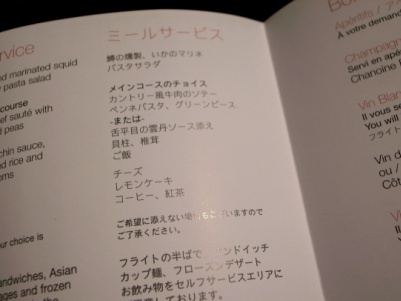 ervice
nd marinated squid
y pasta salad
course
ef sauté with
d peas
chin sauce,
d rice and
oms
ur choice is
ndwiches, Asian
ages and frozen
ミールサービス
鱒の燻製、いかのマリネ
パスタサラダ
メインコースのチョイス
カントリー風牛肉のソテー
ペンネパスタ、グリーンピース
-または-
舌平目の雲丹ソース添え
貝柱、椎茸
ご飯
チーズ
レモンケーキ
コーヒー、紅茶
ご希望に添えない場合もございますので
ご了承ください。
フライトの半ばで、サンドイッチ
カップ麺、フローズンデザート
お飲み物をセルフサービスエリアに
Apéritifs / ア
A votre deman
Champagn
Servi en apéri
Chanoine
Vin Blan
Il vous se
You will
フライト
Vin d
ou /
Côt
Vi